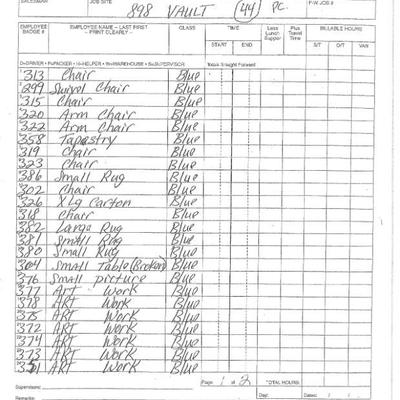 SALESMAN JOB SITE P-W JOB #
898 VAULT (44) PC.
EMPLOYEE BADGE # EMPLOYEE NAME - LAST FIRST - PRINT CLEARLY - CLASS TIME START END Less Lunch Supper Plus Travel Time BILLABLE HOURS S/T O/T VAN
D=DRIVER • P=PACKER • H=HELPER • W=WAREHOUSE • S=SUPERVISOR Break Straight Forward
313 Chair Blue
299 Swivel Chair Blue
315 Chair Blue
320 Arm Chair Blue
322 Arm Chair Blue
358 Tapestry Blue
319 Chair Blue
323 Chair Blue
386 Small Rug Blue
302 Chair Blue
326 XLg Carton Blue
318 Chair Blue
382 Large Rug Blue
381 Small Rug Blue
380 Small Rug Blue
304 Small Table (Broken) Blue
376 Small picture Blue
377 ART Work Blue
378 ART Work Blue
375 ART Work Blue
372 ART Work Blue
374 ART Work Blue
373 ART Work Blue
ART Work Blue
Supervisor: Page 1 of 2 TOTAL HOURS
Dept: Dated: / /